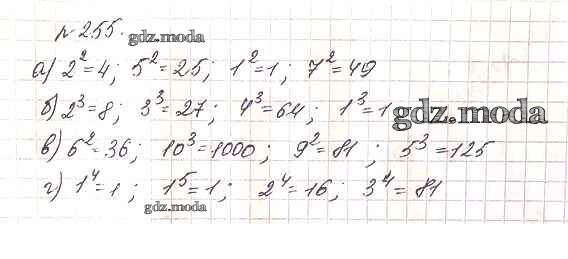 № 255. gdz.moda
а) 2²=4; 5²=25; 1²=1; 7²=49
б) 2³=8; 3³=27; 4³=64; 1³=1 gdz.moda
в) 6²=36; 10³=1000; 9²=81; 5³=125
г) 1⁴=1; 1⁵=1; 2⁴=16; 3⁴=81
gdz.moda